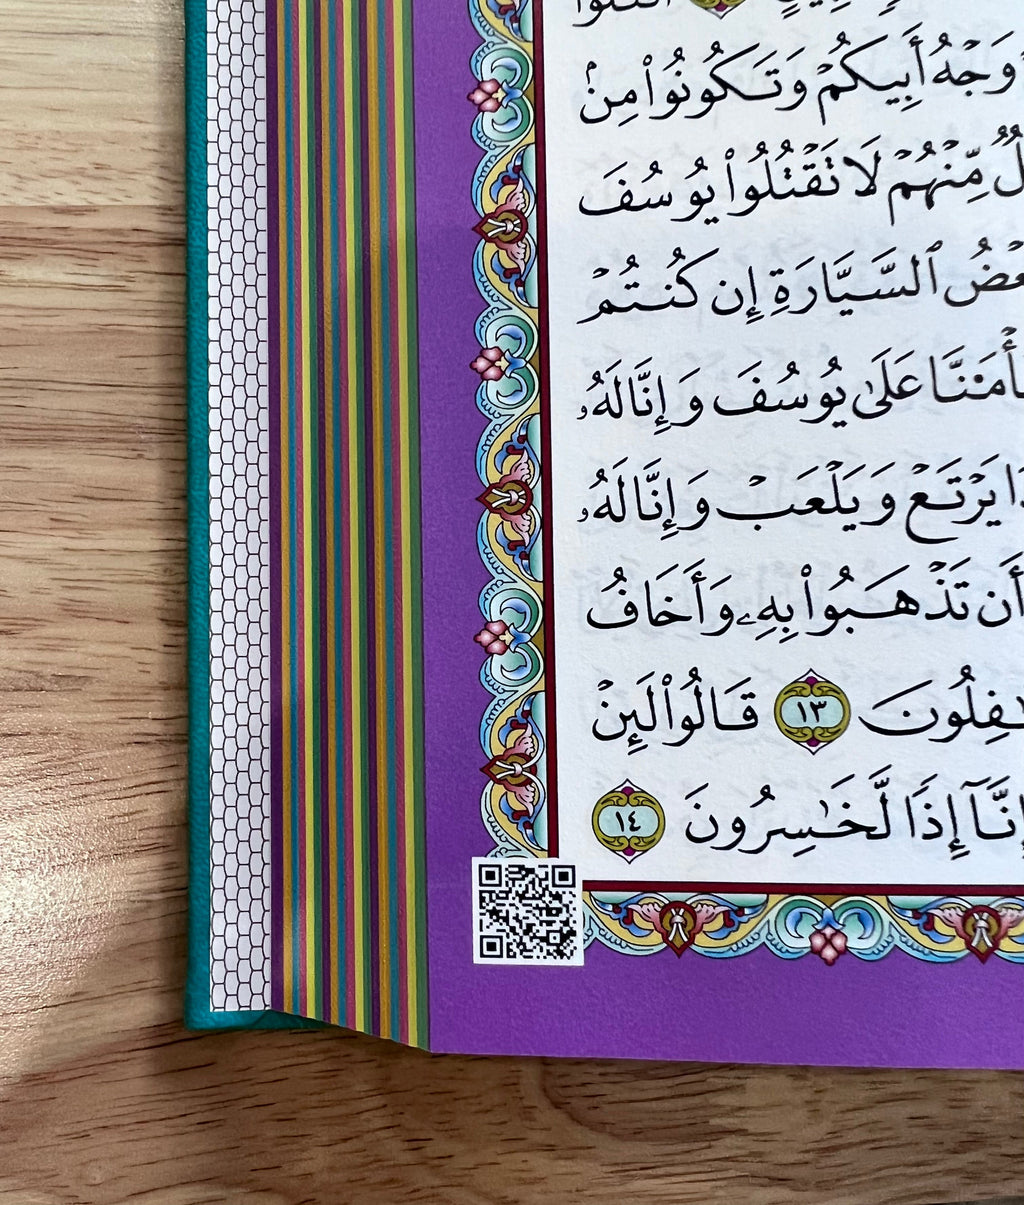 وَجۡهُ أَبِيكُمۡ وَتَكُونُوا۟ مِنۢ
مِّنۡهُمۡ لَا تَقۡتُلُوا۟ يُوسُفَ
عۡضُ ٱلسَّيَّارَةِ إِن كُنتُمۡ
أۡمَنَّا عَلَىٰ يُوسُفَ وَإِنَّا لَهُۥ
يَرۡتَعۡ وَيَلۡعَبۡ وَإِنَّا لَهُۥ
أَن تَذۡهَبُوا۟ بِهِۦ وَأَخَافُ
ـٰفِلُونَ ١٣ قَالُوا۟ لَئِنۡ
إِنَّآ إِذٗا لَّخَٰسِرُونَ ١٤